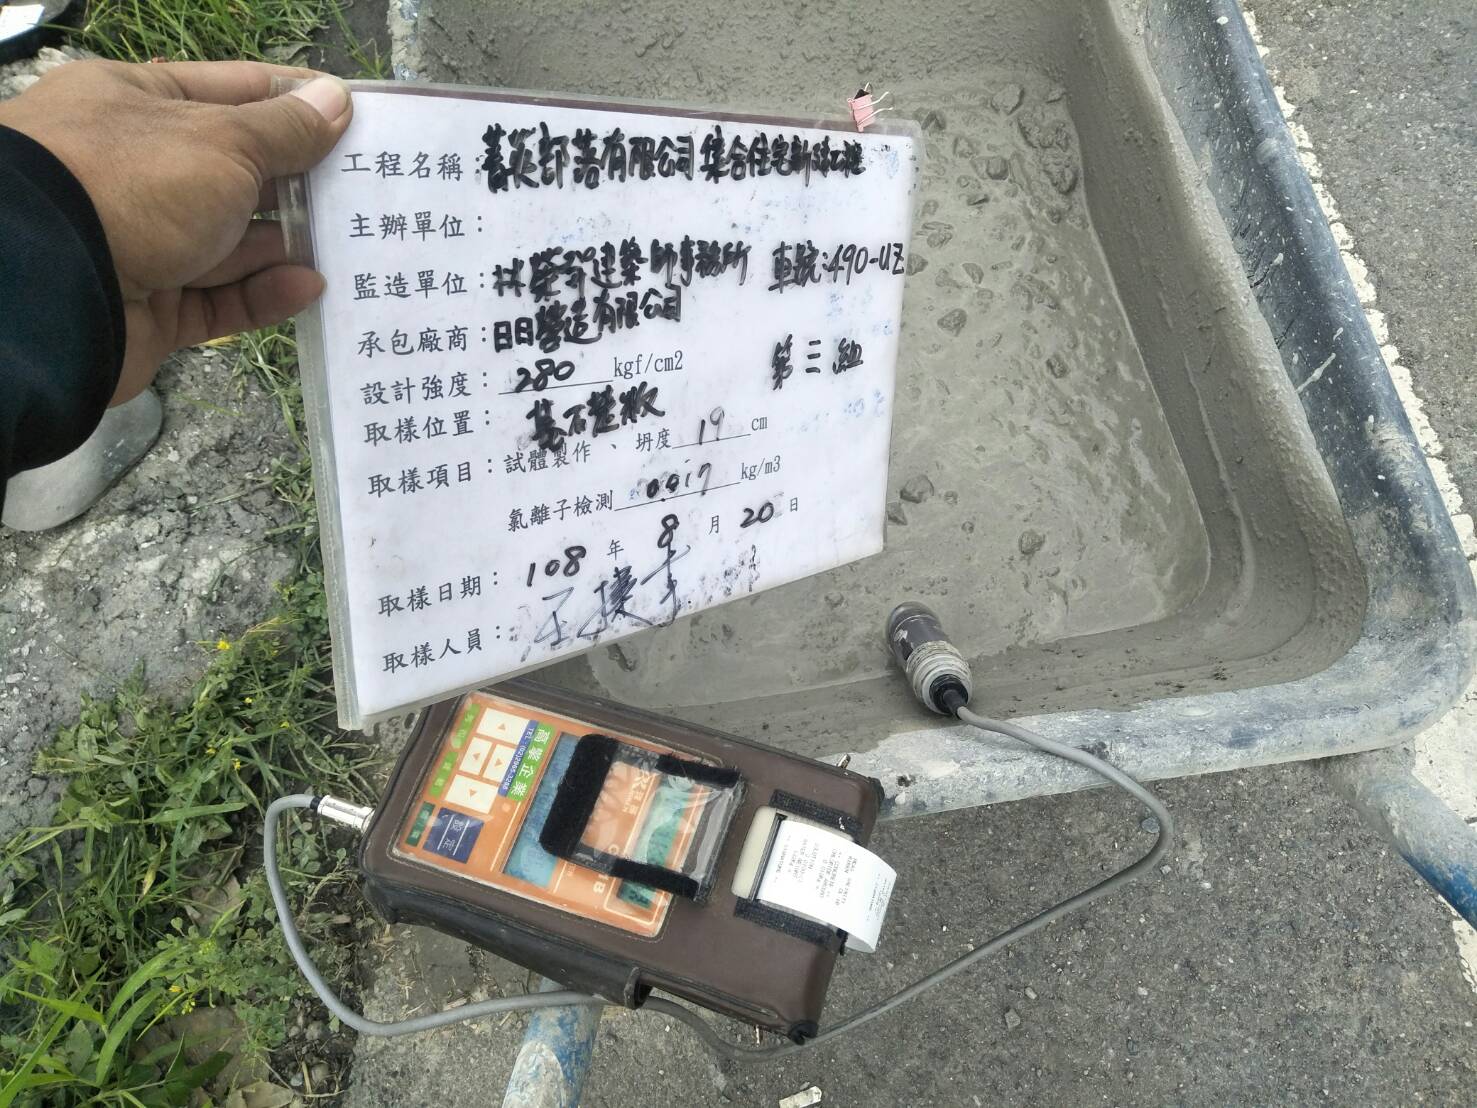 工程名稱：菁英部落有限公司集合住宅新建工程
主辦單位：
監造單位：林榮 建築師事務所 車號:490-UZ
承包廠商：日日營造有限公司
設計強度：280 kgf/cm2 第三組
取樣位置：基礎版
取樣項目：試體製作、坍度 19 cm
氯離子檢測 0.017 kg/m3
取樣日期：108年8月20日
取樣人員：
高葦企業
設定